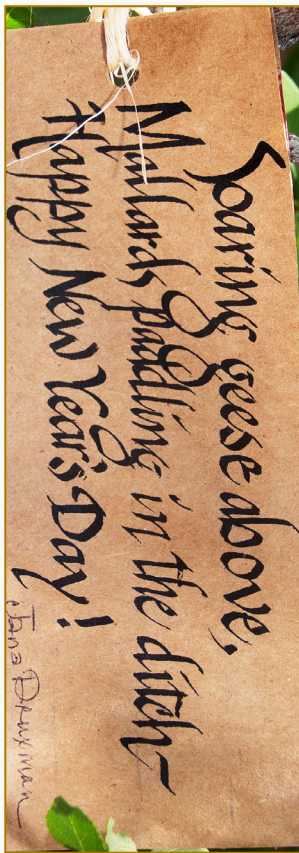 Soaring geese above,
Mallards paddling in the ditch-
Happy New Year's Day!
Jana Druxman